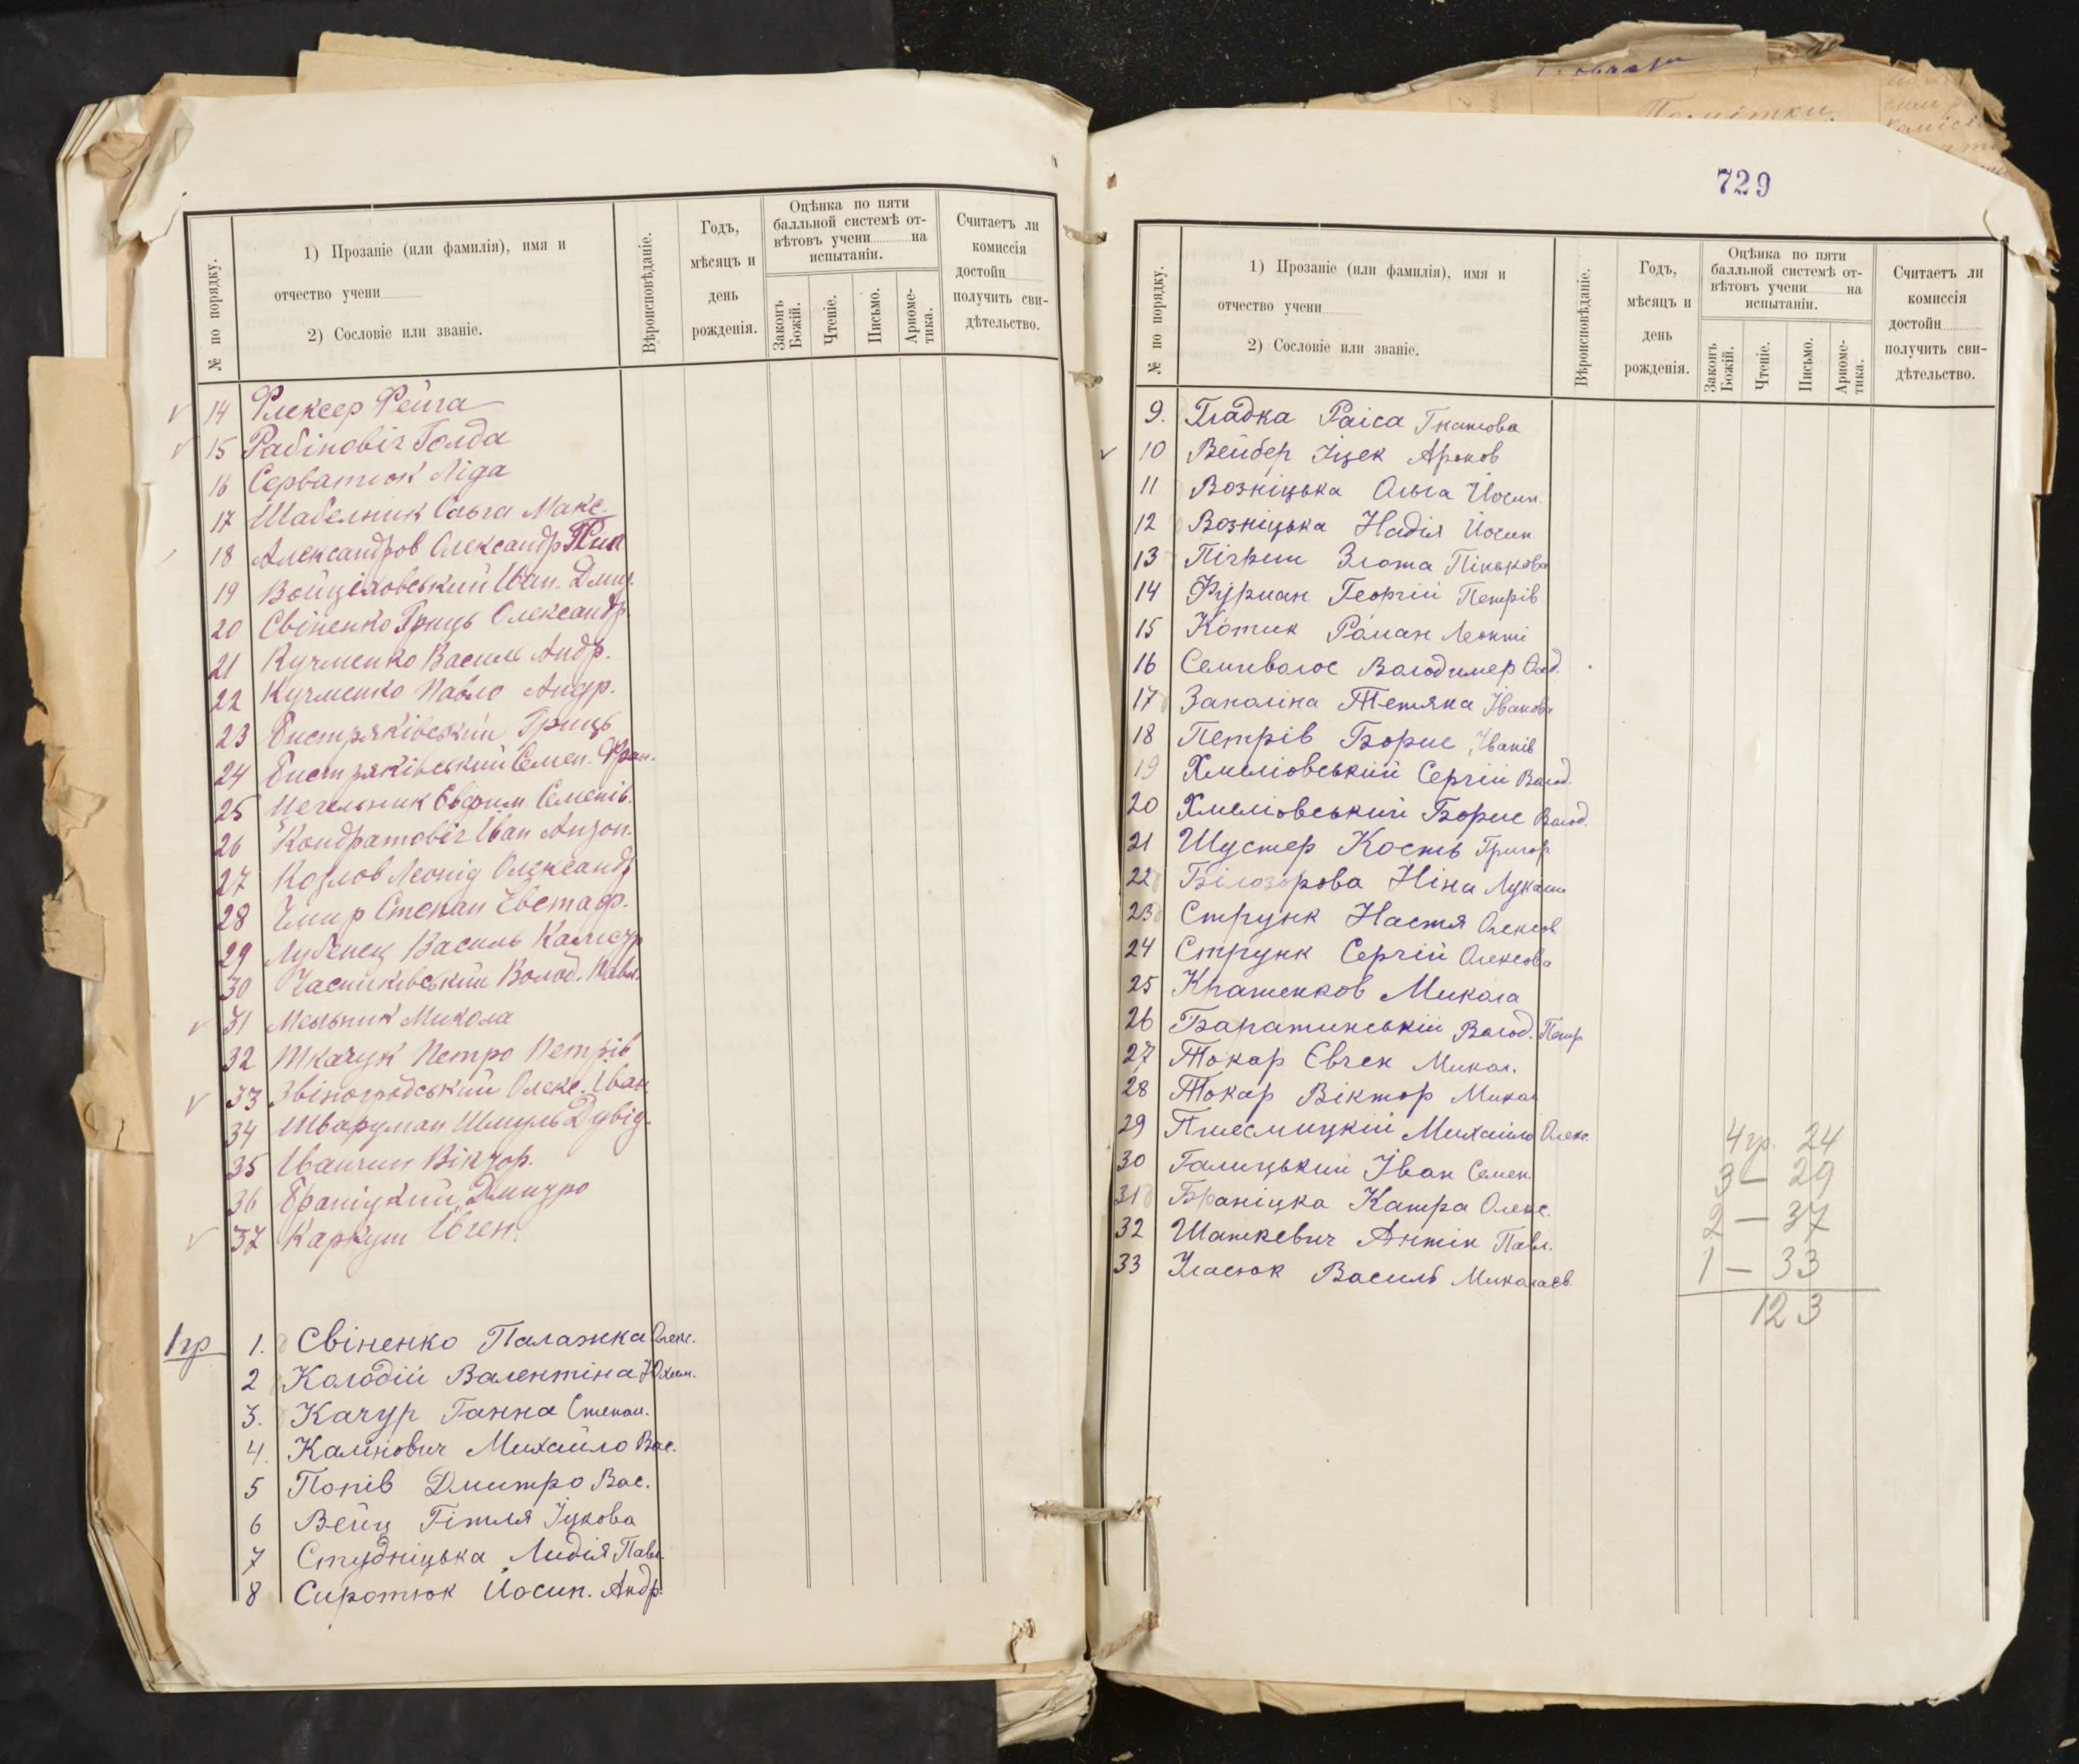 № по порядку.
1) Прозаніе (или фамилія), имя и
отчество учени
2) Сословіе или званіе.
Вѣроисповѣданіе.
Годъ,
мѣсяцъ и
день
рожденія.
Оцѣнка по пяти
балльной системѣ от-
вѣтовъ учени на
испытаніи.
Законъ
Божій.
Чтеніе.
Письмо.
Ариѳме-
тика.
Считаетъ ли
комиссія
достойн
получить сви-
дѣтельство.
14 Флексер Рейга
15 Рабіновіч Голда
16 Серватюк Ліда
17 Шабельник Ольга Макс.
18 Александров Олександр
19 Войціховський Іван. Дмит.
20 Свіненко Гриць Олександр.
21 Кучменко Василь Андр.
22 Кучменко Павло Андр.
23 Бистряківський Гриць
24 Бистряківський Семен. Фран.
25 Печельник Євфим. Семенів.
26 Кондратовіч Іван Антон.
27 Козлов Леонід Олександр
28 Чмир Степан Євстаф.
29 Лубенец Василь
30 Часниківський Волод. Павл.
31 Мельник Микола
32 Ткачук Петро Петрів
33 Звіногродський Олекс. Іван.
34 Шварцман Шмуль Дувід.
35 Іванчин Віктор.
36 Браніцкий Дмитро
37 Каркуш Євген.
1 гр
1. Свіненко Палажка Олекс.
2 Колодій Валентіна Юхим.
3. Качур Ганна Степан.
4. Калінович Михайло Вас.
5 Попів Дмитро Вас.
6 Вейц Гітля Іцкова
7 Студніцька Лидія Павл.
8 Сиротюк Йосип. Андр.
729
№ по порядку.
1) Прозаніе (или фамилія), имя и
отчество учени
2) Сословіе или званіе.
Вѣроисповѣданіе.
Годъ,
мѣсяцъ и
день
рожденія.
Оцѣнка по пяти
балльной системѣ от-
вѣтовъ учени на
испытаніи.
Законъ
Божій.
Чтеніе.
Письмо.
Ариѳме-
тика.
Считаетъ ли
комиссія
достойн
получить сви-
дѣтельство.
9. Гладка Раіса Гнатова
10 Вейбер Іцек Аронов
11 Возніцька Ольга Йосип.
12 Возніцька Надія Йосип.
13 Пічрин Злота Пінькова
14 Фурман Георгій Петрів
15 Котик Роман Леонті
16 Семиволос Володимер
17 Заполіна Тетяна Іванова
18 Петрів Борис Іванів
19 Хмеліовський Сергій Волод.
20 Хмеліовський Борис Волод.
21 Шустер Кость Григор
22 Білозорова Ніна Лукаш
23 Струнк Настя Олексов
24 Струнк Сергій Олексова
25 Крашенков Микола
26 Баратинський Волод. Петр
27 Токар Євген Микол.
28 Токар Віктор Микол
29 Михайло Олекс.
30 Галицький Іван Семен.
31 Браніцка Катра Олекс.
32 Шаткевич Антін Павл.
33 Власюк Василь Миколаєв.
4 гр. 24
3 — 29
2 — 37
1 — 33
123
Помітки.